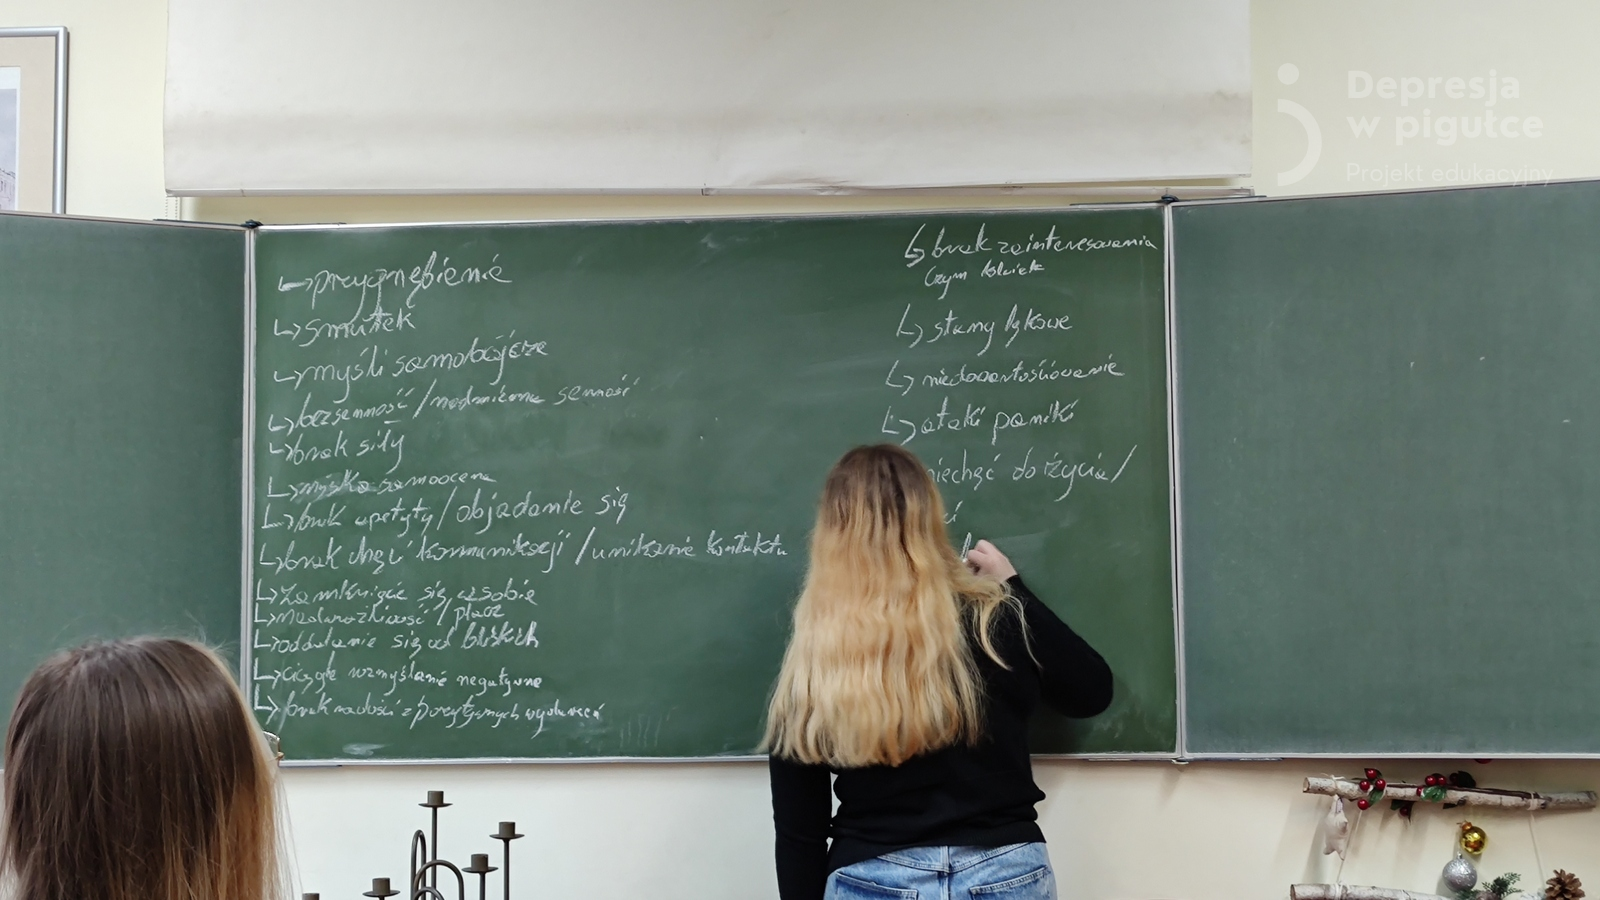 Depresja
w pigułce
Projekt edukacyjny
↳ przygnębienie
↳ smutek
↳ myśli samobójcze
↳ bezsenność / nadmierna senność
↳ brak siły
↳ niska samoocena
↳ brak apetytu / objadanie się
↳ brak chęci komunikacji / unikanie kontaktu
↳ zamknięcie się w sobie
↳ nadwrażliwość / płacz
↳ oddalanie się od bliskich
↳ ciągłe rozmyślanie negatywne
↳ brak radości z pozytywnych wydarzeń
↳ brak zainteresowania
czym kolwiek
↳ stany lękowe
↳ niedowartościowanie
↳ ataki paniki
niechęć do życia /